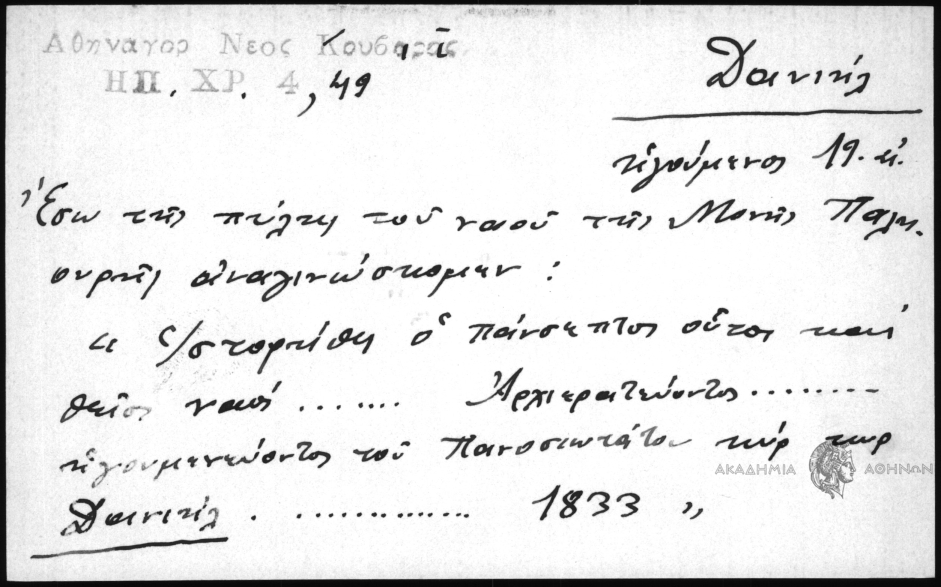 Αθηναγορ Νεος Κουβαρᾶς, ϊ
ΗΠ. ΧΡ. 4, 49
Δανιήλ
ἡγούμενος 19. αἰ.
Ἔσω τῆς πύλης τοῦ ναοῦ τῆς Μονῆς Παλιουρῆς ἀναγινώσκομεν :
« Ἱστορήθη ὁ πάνσεπτος οὗτος καὶ
θεῖος ναός ....... Ἀρχιερατεύοντος ........
ἡγουμενεύοντος τοῦ Πανοσιωτάτου κύρ κυρ
Δανιήλ . ............. 1833 »
ΑΚΑΔΗΜΙΑ ΑΘΗΝΩΝ